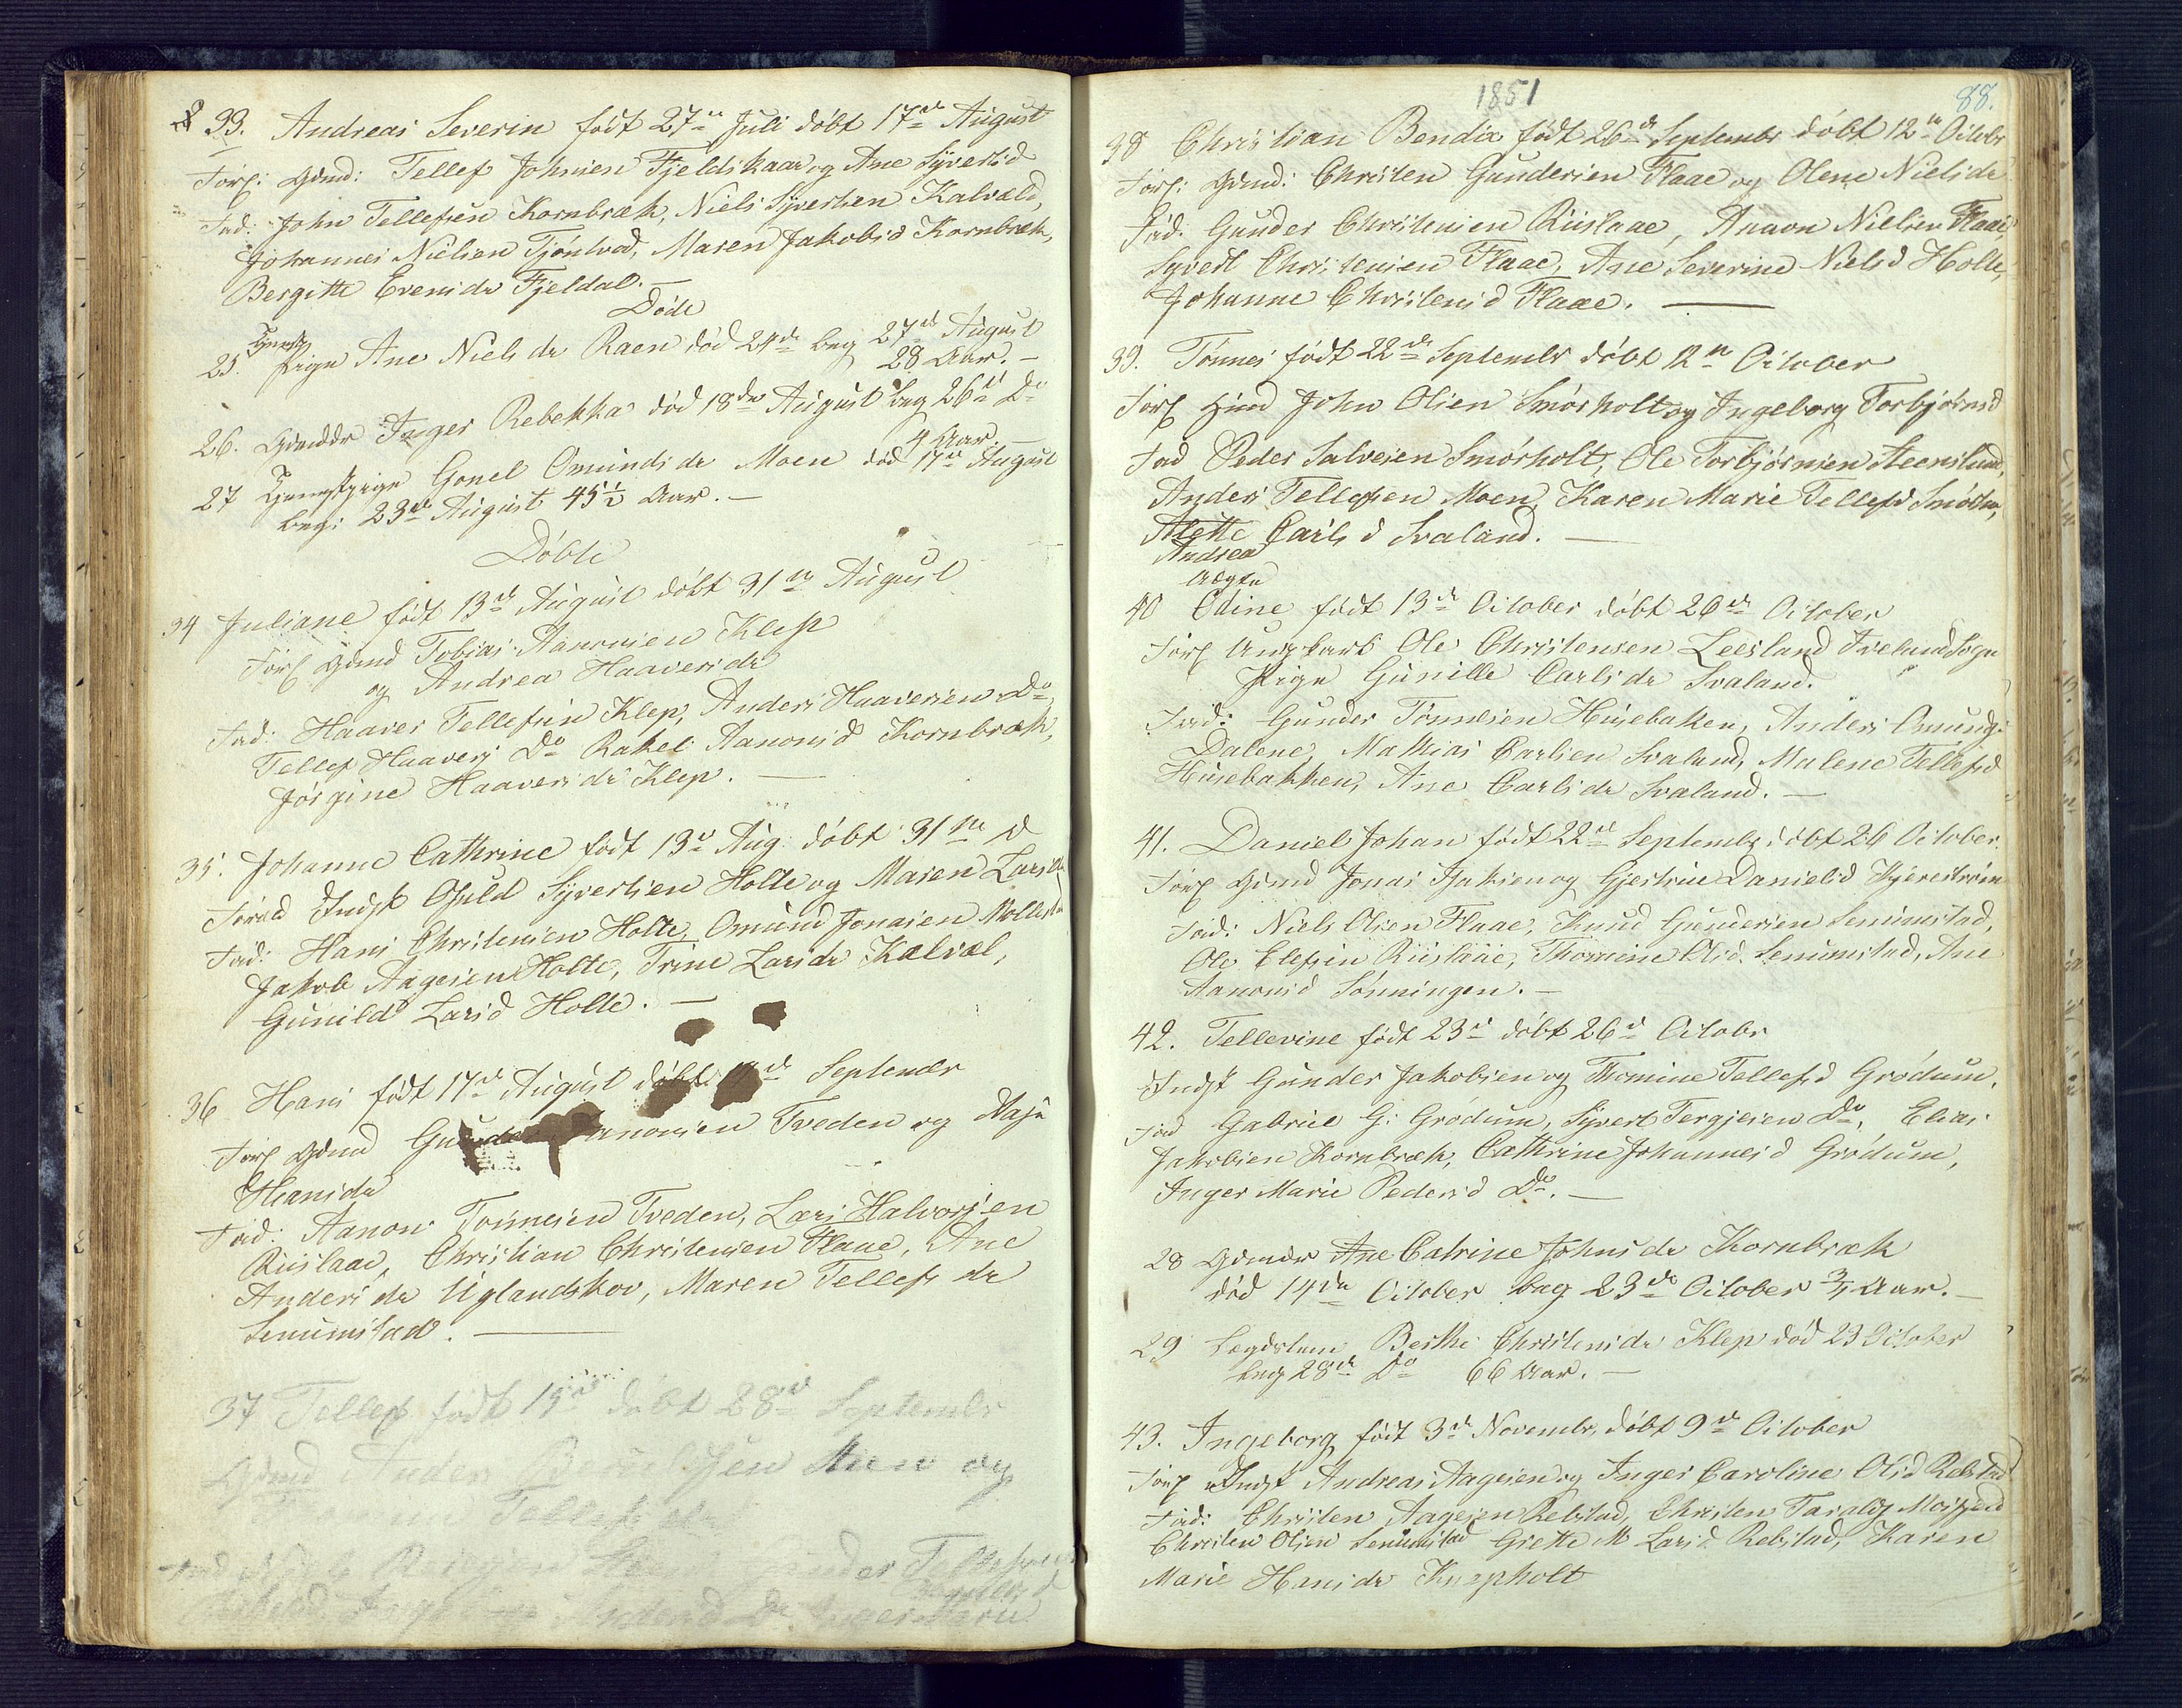 33. Andreas Severin født 27de Juli døbt 17de August
For: Gdmd: Tellef Johnsen Fjeldskaar og Ane Syvertsd
Fad: John Tellefsen Kornbræk, Niels Syvertsen Kalvæld,
Johannes Nielsen Tjøntved, Maren Jakobsd Kornbræk,
Bergitte Evensdr Fjeldal. —
Døde
25. Pige Ane Nielsdr Raen død 24de beg 27de August
28 Aar. —
26. Gmddr Inger Rebekka død 18de August beg 26de Do
4 Aar. —
27 Tjenestpige Gonel Omundsdr Moen død 17de August
beg: 23de August 45½ Aar. —
Døbte
34 Juliane født 13de August døbt 31te August
For Gdmd Tobias Aanonsen Klep
og Andrea Haaversdr
Fad: Haaver Tellefsen Klep, Anders Haaversen Do
Tellef Haavers Do Rakel Aanonsd Kornbræk,
Jørgine Haaversdr Klep. —
35. Johanne Cathrine født 13de Aug: døbt 31te d
Foræld Indst Osuld Syvertsen Holte og Maren Larsdr
Fad: Hans Christensen Holte, Omund Jonasen Mollestad
Jakob Aagesen Holte, Trine Larsdr Kalvæl,
Gunild Larsd Holte. —
36 Hans født 17de August døbt de September
For Gdmd Aanonsen Tveden og Maja
Hansdr
Fad: Aanon Tønnesen Tveden, Lars Halvorsen
Riislaae, Christian Christensen Flaae, Ane
Andersdr Uglandskov, Maren Tellefsdr
Senumstad. —
37 Tellef født 19de døbt 28de Septembr
Gdmd Anders og
Tellefsdr
1851
88.
38 Christian Bendix født 26de Septembr døbt 12te Octobr
For: Gdmd: Christen Gundersen Flaae og Olene Nielsdr
Fad. Gunder Christensen Riislaae, Anaon Nielsen Flaae
Syvert Christensen Flaae, Ane Severine Nielsd Holte,
Johanne Christensd Flaae. —
39. Tønnes født 22de Septembr døbt 12te October
For Hmd John Olsen Smørholt og Ingeborg Torbjørnsd
Fad Peder Salvesen Smørholt, Ole Torbjørnsen Steenslund,
Anders Tellefsen Moen, Karen Marie Tellefsd Smørho,
Alette Carlsd Svaland. —
Andrea
uægte
40 Edine født 13de October døbt 26de October
For Ungkarl Ole Christensen Leesland Iveland Sogn
Pige Gunille Carlsdr Svaland.
Fad: Gunder Tønnesen Husebakken, Anders Omunds
Dalene, Mathias Carlsen Svaland, Malene Tellefsd
Husebakken, Ane Carlsdr Svaland. —
41. Daniel Johan født 22de Septembr døbt 26 October.
For Gdmd Jonas Isaksen og Gjestrue Danielsd Kjerestrøm
Fad: Niels Olsen Flaae, Knud Gundersen Senumstad,
Ole Elefsen Riislaae, Thomine Olsd. Senumstad, Ane
Aanonsd Lønningen. —
42. Tellevine født 23de døbt 26de Octobr
Indst Gunder Jakobsen og Thomine Tellefsd Grødum.
Fad Gabriel G: Grødum, Syvert Tergjesen Do, Elias
Jakobsen Kornbræk, Cathrine Johannesd Grødum,
Inger Marie Pedersd Do. —
28 Gdmdr Ane Catrine Johnsdr Kornbræk
død 14de October beg 23de October ¾ Aar. —
29 Lægdslem Berthe Christensdr Klep død 23 October
beg 28de Do 66 Aar. —
43. Ingeborg født 3de Novembr, døbt 9de October
For Indst Andreas Aagesen og Inger Caroline Olsd Rebstad
Fad: Christen Aagesen Rebstad, Christen Taralds Mosfjeld
Christen Olsen Senumstad Grette M Larsd Rebstad, Karen
Marie Hansdr Knapholt